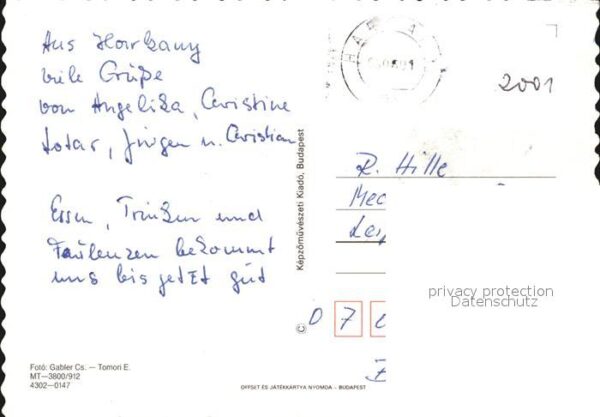 Aus Harkany
viele Grüße
von Angelika, Christine
Lotar, Jürgen u. Christian
Essen, Trinken und
Faulenzen bekommt
uns bis jetzt gut
2001
R. Hille
Mec
Leip
D 7
Képzőművészeti Kiadó, Budapest
©
privacy protection
Datenschutz
Fotó: Gabler Cs. — Tomori E.
MT—3800/912
4302—0147
OFFSET ÉS JÁTÉKKÁRTYA NYOMDA - BUDAPEST